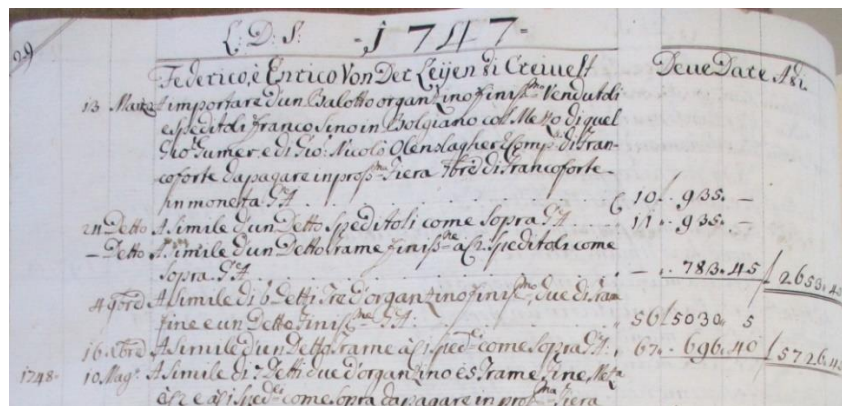 29 L: D: S: - 1747 -
Federico, è Enrico Von Der Leijen di Creivelt Deve Dare Adi
13 Marzo A importare d'un Balotto organzino finiss.mo Vendutoli
e speditoli franco sino in Bolgiano col Mezzo di quel
Gio: Gumer, e di Gio: Nicolò Olenslagher e Comp. di Fran-
coforte da pagare in pross.ma Fiera 7bre di Francoforte
in moneta 10 . 935. —
21 Detto A simile d'un Detto speditoli come sopra 11 . 935. —
— Detto A simile d'un Detto trame finiss.me à 2 speditoli come
sopra — . 783. 45 / 2653. 45
4 9bre A simile di 6 Detti Tre d'organzino finiss.mo, due di tram
fine e un Detto finiss.me 56 / 5030. 5
16 Xbre A simile d'un Detto trame à 2 sped.li come sopra 67 . 696. 40 / 5726. 45
1748. 10 Mag. A simile di 7 Detti due d'organzino è 5 Trame, fine
à 2 e à 3 sped.li come sopra da pagare in pross.ma Fiera